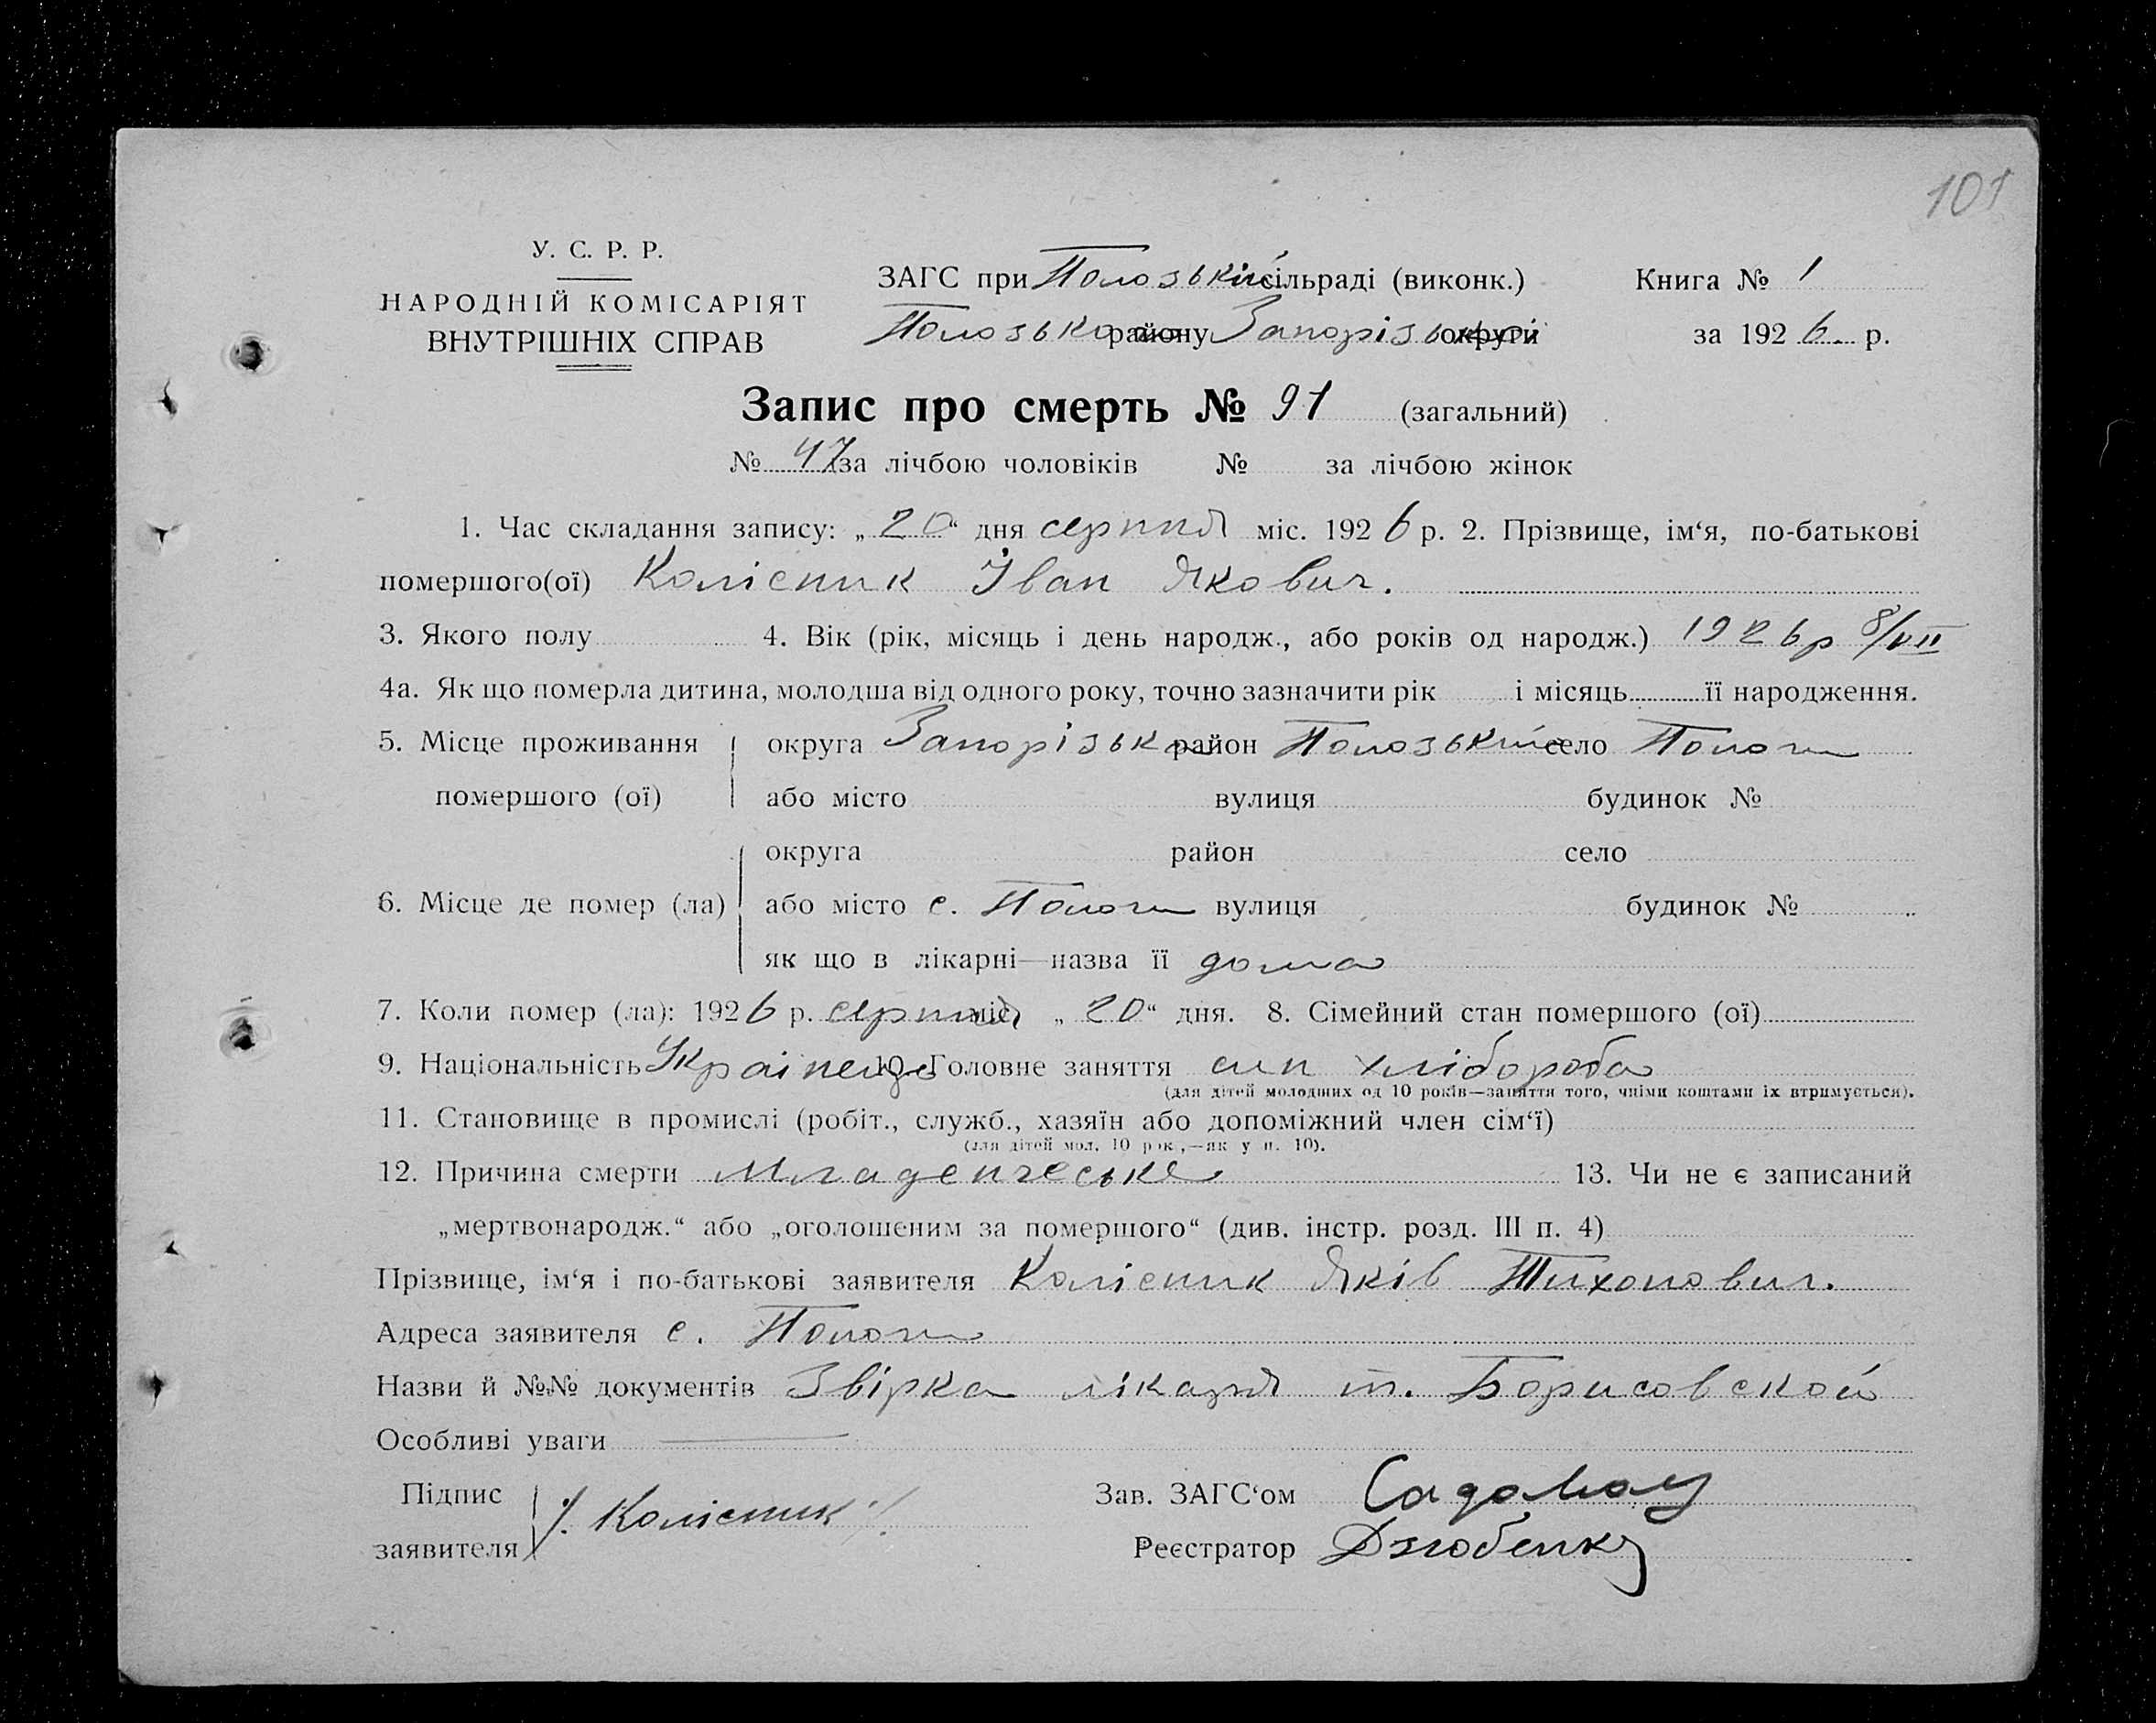 101
У. С. Р. Р.
НАРОДНІЙ КОМІСАРІЯТ
ВНУТРІШНІХ СПРАВ
ЗАГС при Полозькій сільраді (виконк.)
Полозького району Запорізької округи
Книга № 1
за 1926. р.
Запис про смерть № 91 (загальний)
№ 47 за лічбою чоловіків № за лічбою жінок
1. Час складання запису: „ 20 “ дня серпня міс. 1926 р. 2. Прізвище, ім‘я, по-батькові
помершого(ої) Колісник Іван Якович.
3. Якого полу 4. Вік (рік, місяць і день народж., або років од народж.) 1926р 8/VII
4а. Як що померла дитина, молодша від одного року, точно зазначити рік і місяць її народження.
5. Місце проживання округа Запорізька район Полозький село Пологи
помершого (ої) або місто вулиця будинок №
округа район село
6. Місце де помер (ла) або місто с. Пологи вулиця будинок №
як що в лікарні—назва її дома
7. Коли помер (ла): 1926 р. серпня міс. „ 20 “ дня. 8. Сімейний стан помершого (ої)
9. Національність Українець 10. Головне заняття син хлібороба
(для дітей молодших од 10 років—заняття того, чиїми коштами їх втримується).
11. Становище в промислі (робіт., служб., хазяїн або допоміжний член сім‘ї)
(для дітей мол. 10 рок.,—як у п. 10).
12. Причина смерти Младенчеське 13. Чи не є записаний
„мертвонародж.“ або „оголошеним за помершого“ (див. інстр. розд. III п. 4)
Прізвище, ім‘я і по-батькові заявителя Колісник Яків Тихонович.
Адреса заявителя с. Пологи
Назви й №№ документів Звірка лікаря т. Борисовской
Особливі уваги
Підпис
заявителя /. Колісник ./.
Зав. ЗАГС‘ом
Реєстратор Дзюбенко